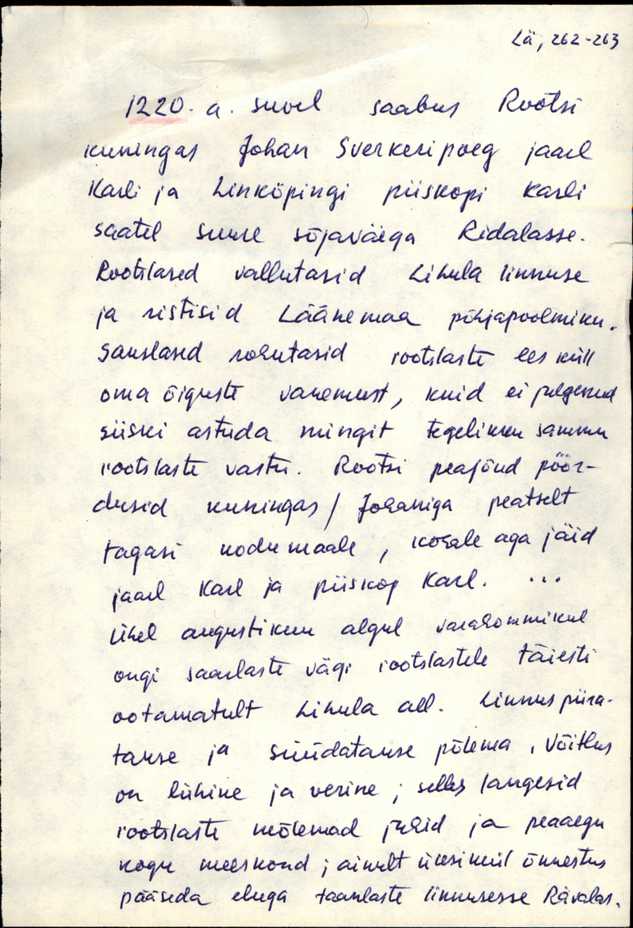 Lä, 262-263
1220. a. suvel saabus Rootsi
kuningas Johan Sverkeripoeg jaarl
Karli ja Linköpingi piiskopi Karli
saatel suure sõjaväega Ridalasse.
Rootslased vallutasid Lihula linnuse
ja ristisid Läänemaa põhjapoolmiku.
Sakslased rõhutasid rootslaste ees küll
oma õiguste vanemust, kuid ei julgenud
siiski astuda mingit tegelikku sammu
rootslaste vastu. Rootsi peajõud pöör-
dusid kuningas / Johaniga peatselt
tagasi kodumaale, kohale aga jäid
jaarl Karl ja piiskop Karl. ...
Ühel augustikuu algul varahommikul
ongi saarlaste vägi rootslastele täiesti
ootamatult Lihula all. Linnus piira-
takse ja süüdatakse põlema, võitlus
on lühike ja verine; selles langesid
rootslaste mõlemad juhid ja peaaegu
kogu meeskond; ainult üksikuil õnnestus
pääseda eluga taanlaste linnusesse Rävalas.